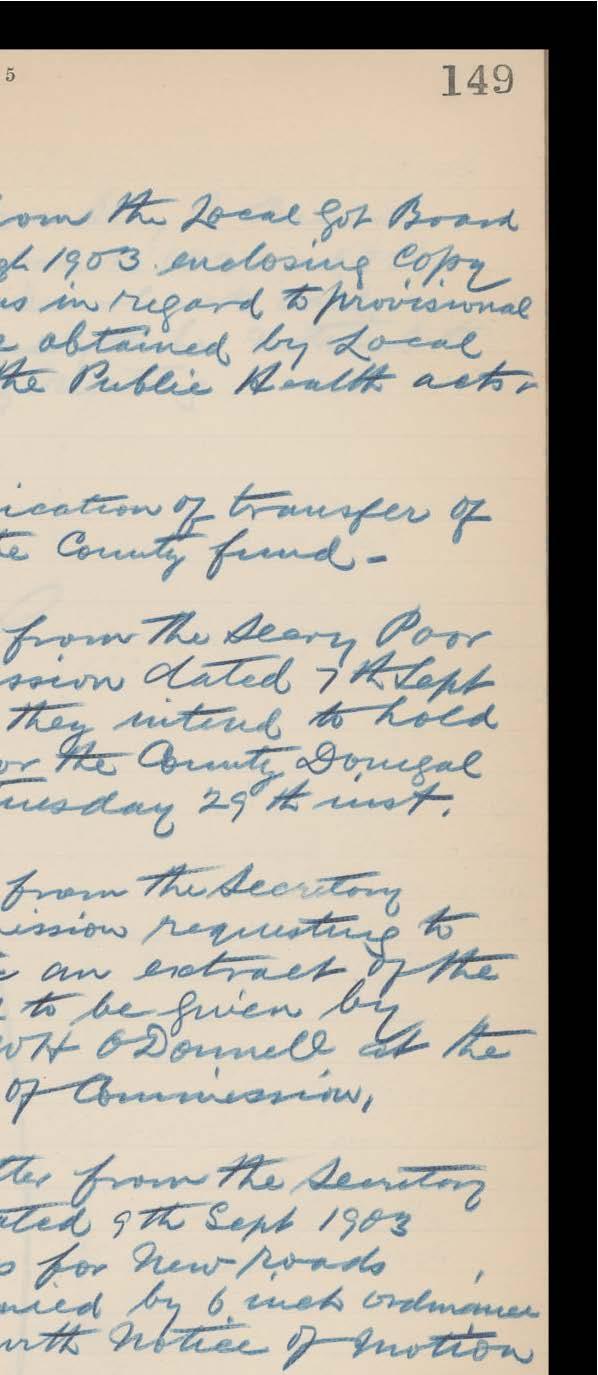 5
149
om the Local Govt Board
gh 1903 enclosing copy
ns in regard to provisional
e obtained by Local
the Public Health acts
ication of transfer of
te County fund -
from the Secry Poor
ssion dated 7th Sept
they intend to hold
or the County Donegal
Tuesday 29th inst.
from the Secretary
ission requesting to
an extract of the
to be given by
WH O'Donnell at the
of Commission,
tter from the Secretary
ated 9th Sept 1903
s for New roads
anied by 6 inch ordinance
with Notice of Motion